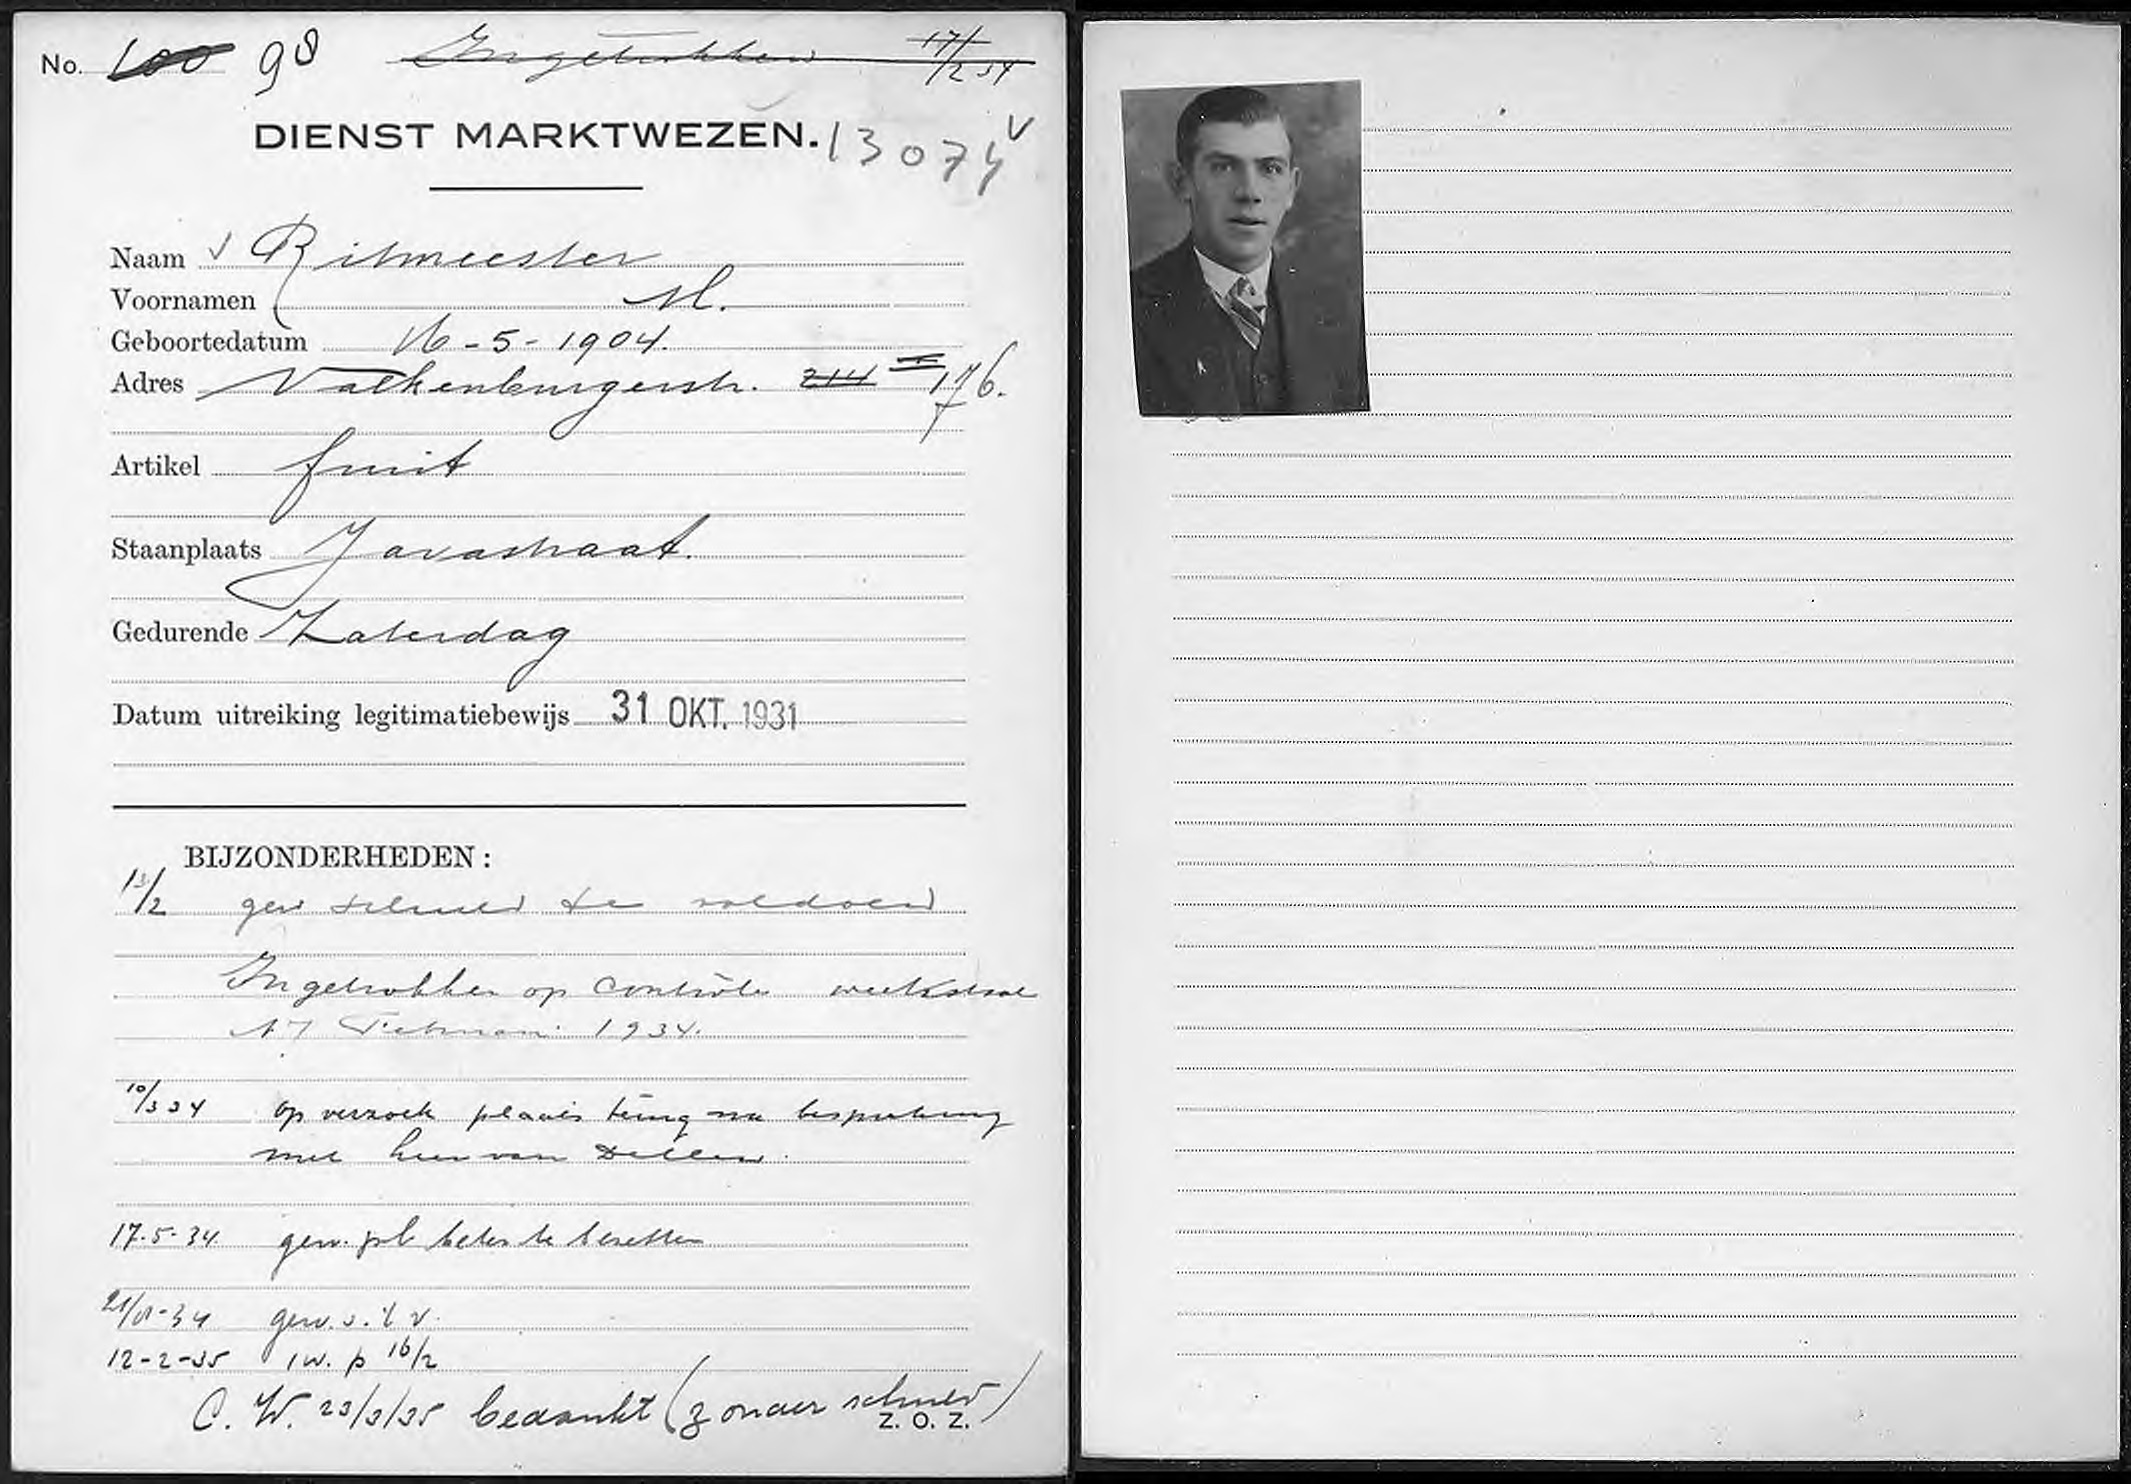 No. 100 98 Ingetrokken 17/2 34
DIENST MARKTWEZEN. 13074 V
Naam V Ritmeester
Voornamen M.
Geboortedatum 16-5-1904.
Adres Valkenburgerstr. 214 II 176.
Artikel fruit
Staanplaats Javastraat.
Gedurende Zaterdag
Datum uitreiking legitimatiebewijs 31 OKT. 1931
BIJZONDERHEDEN:
13/2 gew schuld te voldoen
Ingetrokken op controle weekstaat
17 Februari 1934.
10/3 34 op verzoek plaats terug na bespreking
met heer van Dellen.
17-5-34 gew. pl beter te bezetten
gew.
12-2-35 1 w. p 16/2
C. W. 23/3/35 bedankt (zonder schuld)
Z. O. Z.